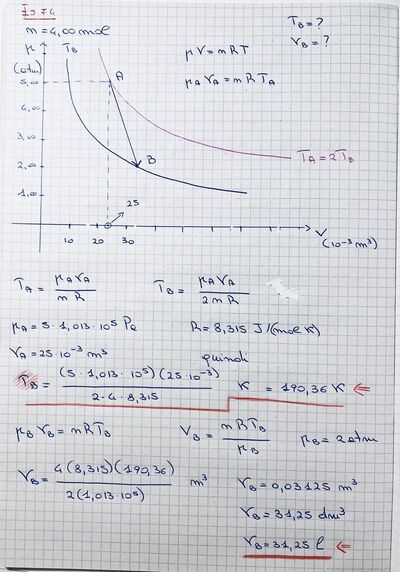 Es 74
m = 4,00 mol
T_B = ?
V_B = ?
p
(atm)
T_B
pV = nRT
p_A V_A = nRT_A
A
5,00
4,00
3,00
2,00
1,00
B
T_A = 2T_B
25
10 20 30
V
(10⁻³ m³)
T_A = p_A V_A / nR    T_B = p_A V_A / 2nR
p_A = 5 · 1,013 · 10⁵ Pa    R = 8,315 J/(mol K)
V_A = 25 · 10⁻³ m³    quindi
T_B = (5 · 1,013 · 10⁵)(25 · 10⁻³) / 2 · 4 · 8,315 K = 190,36 K ⇐
p_B V_B = nRT_B    V_B = nRT_B / p_B    p_B = 2 atm
V_B = 4(8,315)(190,36) / 2(1,013 · 10⁵) m³    V_B = 0,03125 m³
V_B = 31,25 dm³
V_B = 31,25 l ⇐